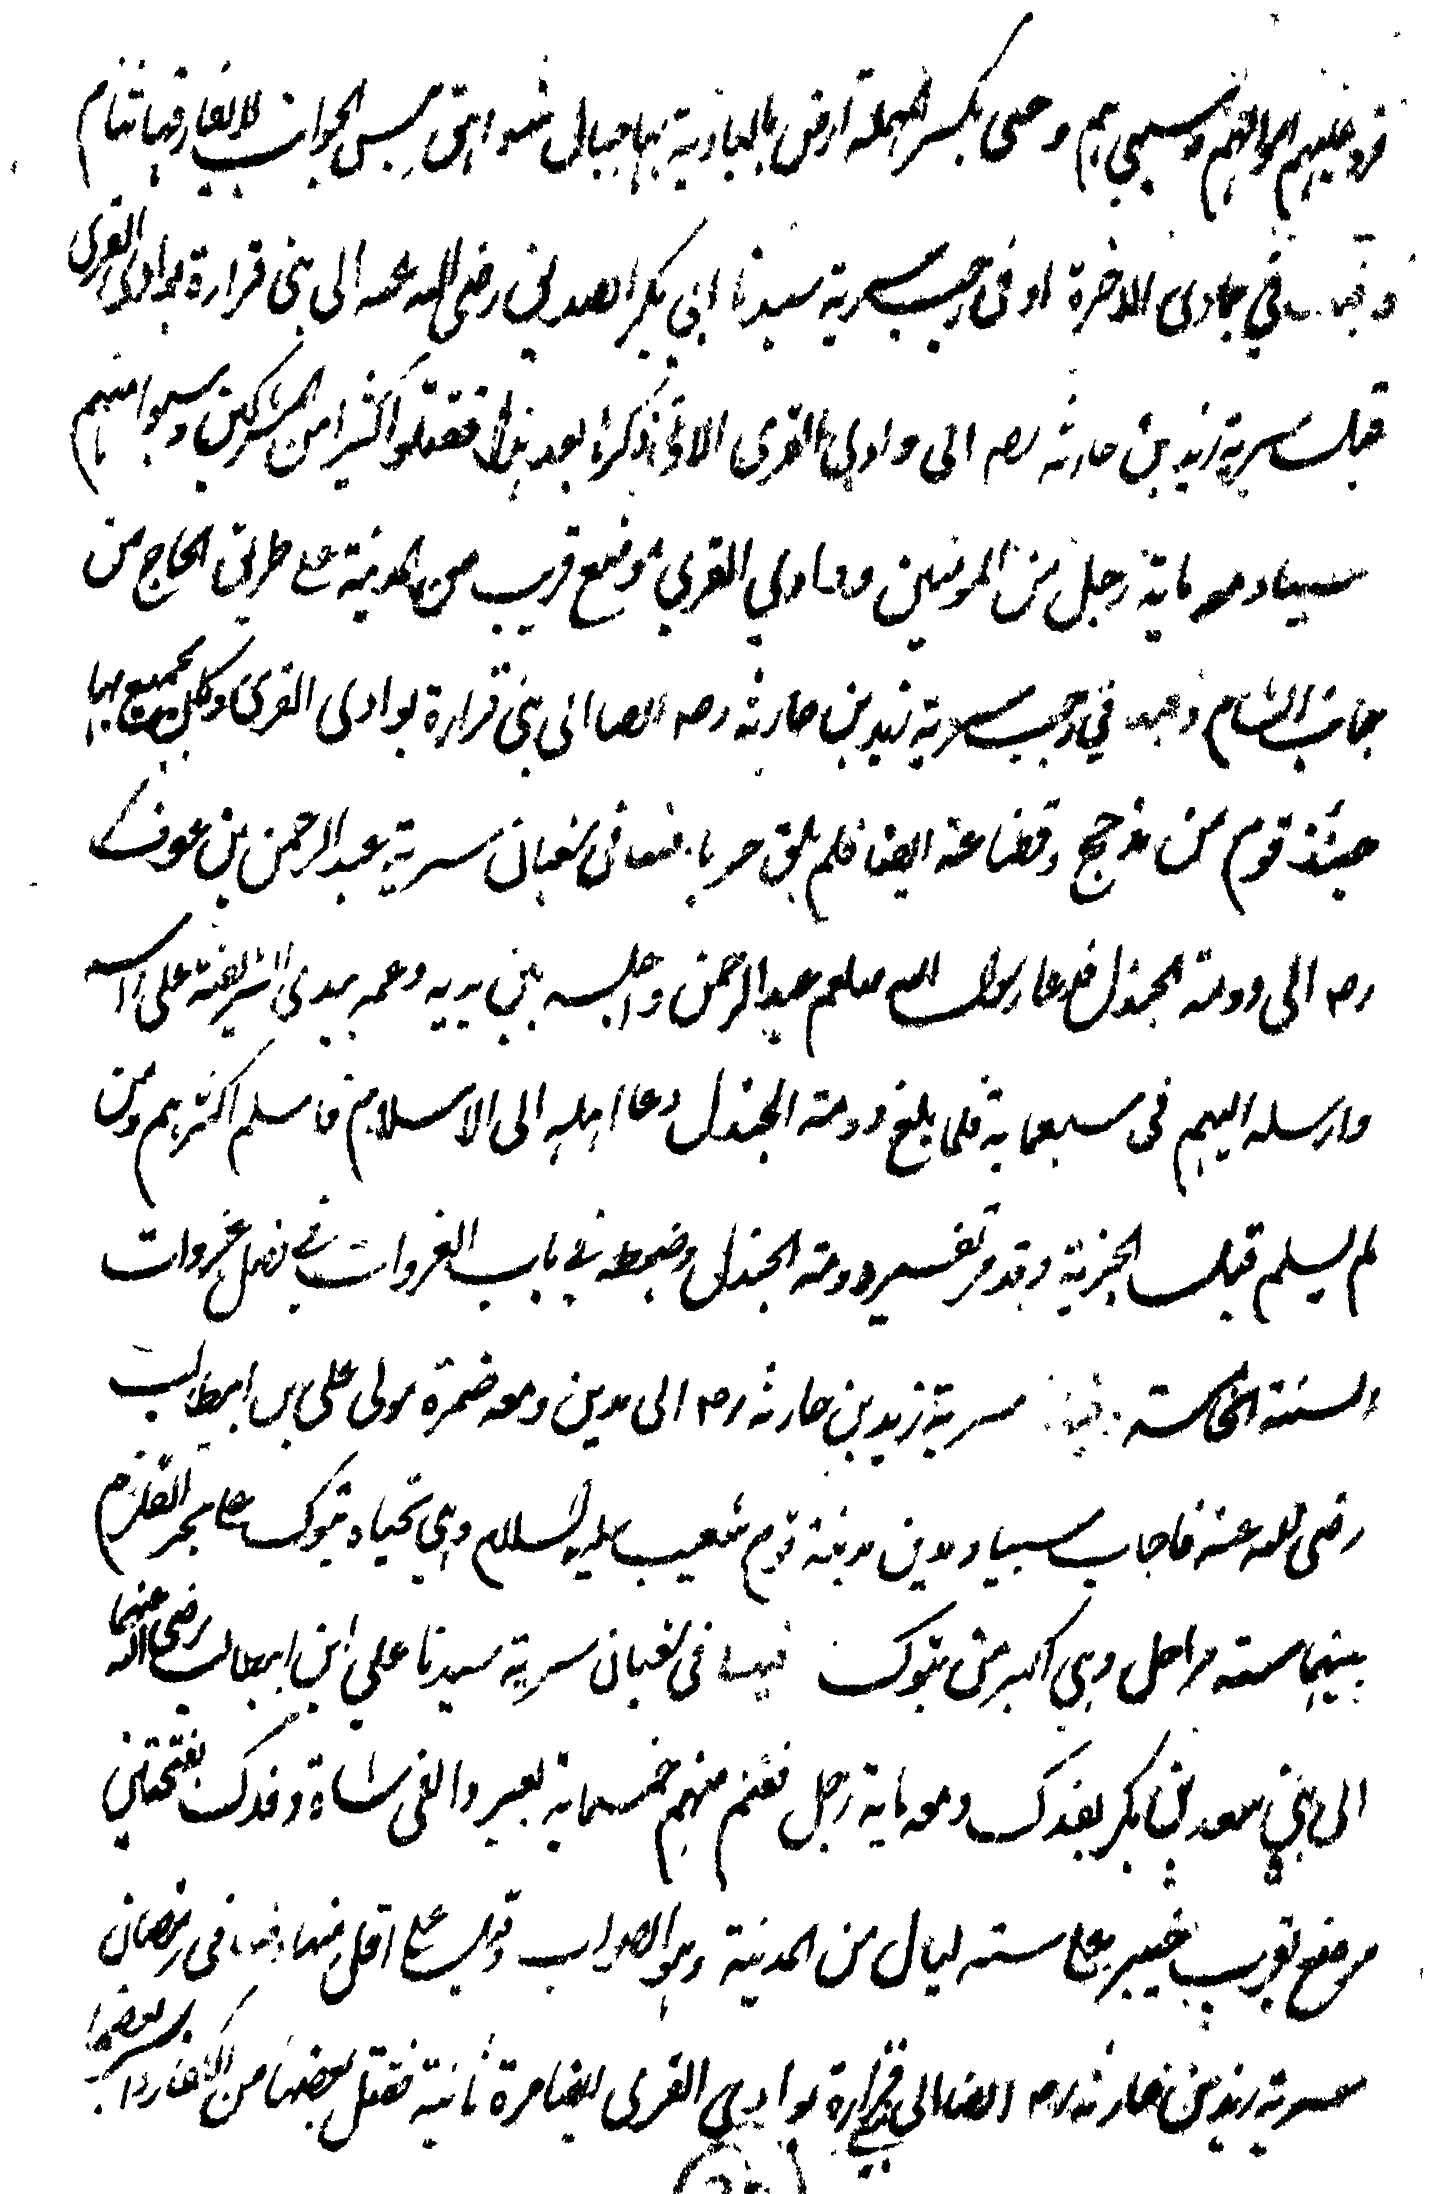 فرد عليهم اموالهم وسبيهم وحسمى بكسر المهملة ارض بالبادية بها جبال شواهق ملس الجوانب لا يفارقها قتام
وفيها في جمادى الاخرة او في رجب سرية سيدنا ابي بكر الصديق رضي الله عنه الى بني فزارة بوادي القرى
قبل سرية زيد بن حارثه رضه الى وادي القرى الاتي ذكره بعد هذا فقتلوا كثيرا من المشركين وسبوا منهم
سبيا ومعه ماية رجل من المومنين ووادي القرى موضع قريب من المدينة على طريق الحاج من
جانب الشام وفيها في رجب سرية زيد بن حارثه رضه ايضا الى بني فزارة بوادي القرى وكان تجمع بها
حينئذ قوم من مذحج وقضاعة ايضا فلم يلق حربا وفيها في شعبان سرية عبد الرحمن بن عوف
رضه الى دومة الجندل فدعا رسول الله صلعم عبد الرحمن واجلسه بين يديه وعممه بيده الشريفة على راسه
وارسله اليهم في سبعماية فلما بلغ دومة الجندل دعا اهله الى الاسلام فاسلم اكثرهم ومن
لم يسلم قبل الجزية وقد مر تفسير دومة الجندل وضبطه في باب الغزوات في فصل غزوات
السنة الخامسة وفيها سرية زيد بن حارثه رضه الى مدين ومعه ضمرة مولى علي بن ابيطالب
رضي الله عنه فاجاب سبيا ومدين مدينة قوم شعيب عليه السلام وهي تجاه تبوك على بحر القلزم
بينهما ستة مراحل وهي اكبر من تبوك وفيها في شعبان سرية سيدنا علي ابن ابيطالب رضي الله عنهما
الى بني سعد بن بكر بفدك ومعه ماية رجل فغنم منهم خمسماية بعير والفي شاة وفدك بفتحتين
موضع بقرب خيبر على ستة ليال من المدينة وهو الصواب وقيل على اقل منها وفيها في رمضان
سرية زيد بن حارثه رضه ايضا الى بني فزارة بوادي القرى ايضا مرة ثانية فقتل بعضها من الكفار واسر بعضها